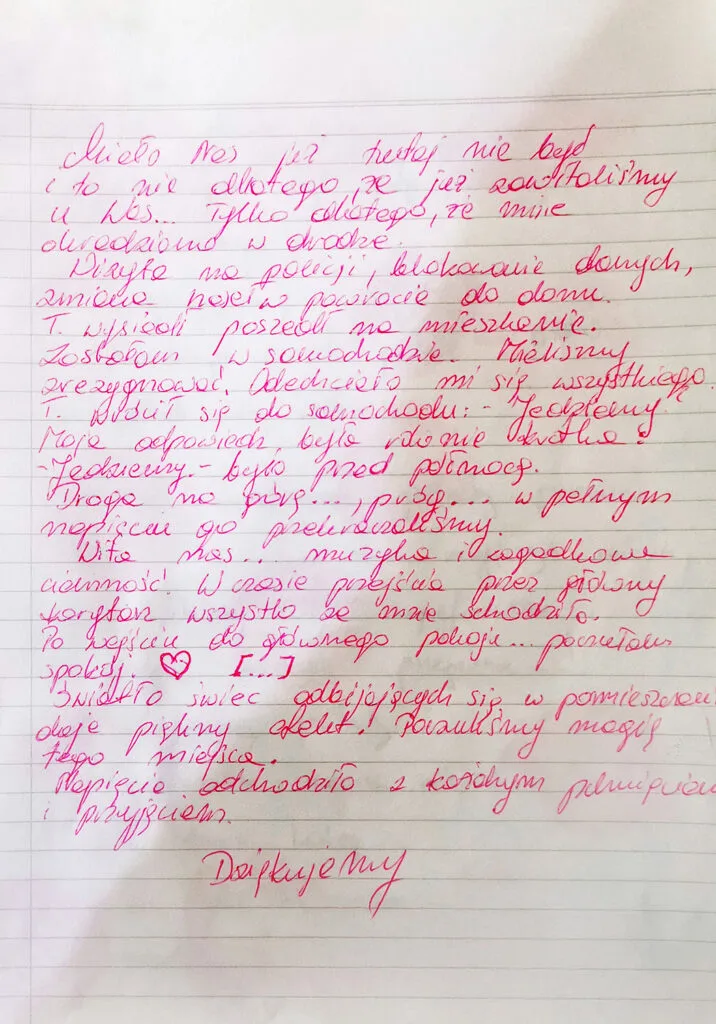 Miało Nas już tutaj nie być
i to nie dlatego, że już zawitaliśmy
u Was... Tylko dlatego, że mnie
okradziono w drodze.
Wizyta na policji, blokowanie danych,
zmiana w powrocie do domu.
T. wysiedli poszedł na mieszkanie.
Zostałam w samochodzie. Mieliśmy
zrezygnować. Odechciało mi się wszystkiego.
T. wrócił się do samochodu: - Jedziemy.
Moja odpowiedź była równie krótka:
- Jedziemy. - było przed północą.
Droga na górę..., próg... w pełnym
napięciu go przekraczaliśmy.
Wita nas... muzyka i zagadkowa
ciemność. W czasie przejścia przez główny
korytarz wszystko ze mnie schodziło.
Po wejściu do głównego pokoju... poczułam
spokój. ♡ [...]
Światło świec odbijających się w
daje piękny efekt. Poczuliśmy magię
tego miejsca.
Napięcie odchodziło z każdym
i przyjęciem.
Dziękujemy